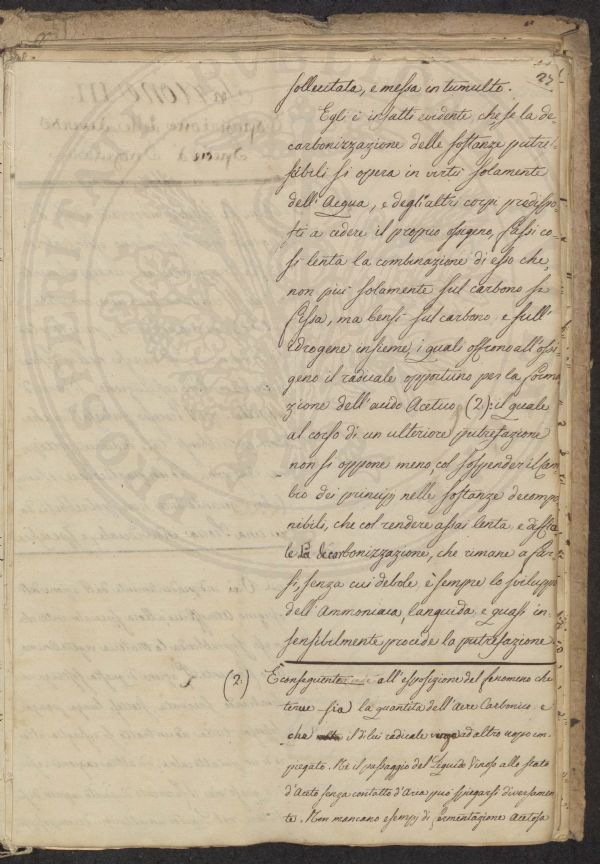 27
sollecitata, e messa in tumulto.
Egli è infatti evidente che, se la de
carbonizzazione delle sostanze putres
sibili si opera in virtù solamente
dell'Acqua, e degli altri corpi predispo
sti a cedere il proprio ossigeno, fassi co
sì lenta la combinazione di esso che,
non più solamente sul carbono si
fissa, ma bensì sul carbono e sull'
idrogene insieme, i quali offrono all'ossi
geno il radicale opportuno per la forma
zione dell'acido Acetico (2): il quale
al corso di un ulteriore putrefazione
non si oppone meno, col sospender il cam
bio dei principj nelle sostanze decompo
nibili, che col rendere assai lenta e diffici
le la decarbonizzazione, che rimane a far
si, senza cui debole è sempre lo sviluppo
dell'Ammoniaca, languida e quasi in
sensibilmente procede la putrefazione
(2) E conseguente all'esposizione del fenomeno che
tenue sia la quantità dell'Aere Carbonico e
che il di lui radicale venga ad altro uopo im
pregato. Nè il passaggio del Liquido Vinoso allo stato
d'Aceto senza contatto d'Aria può spiegarsi diversamen
te. Non mancano esempj di fermentazione Acetosa